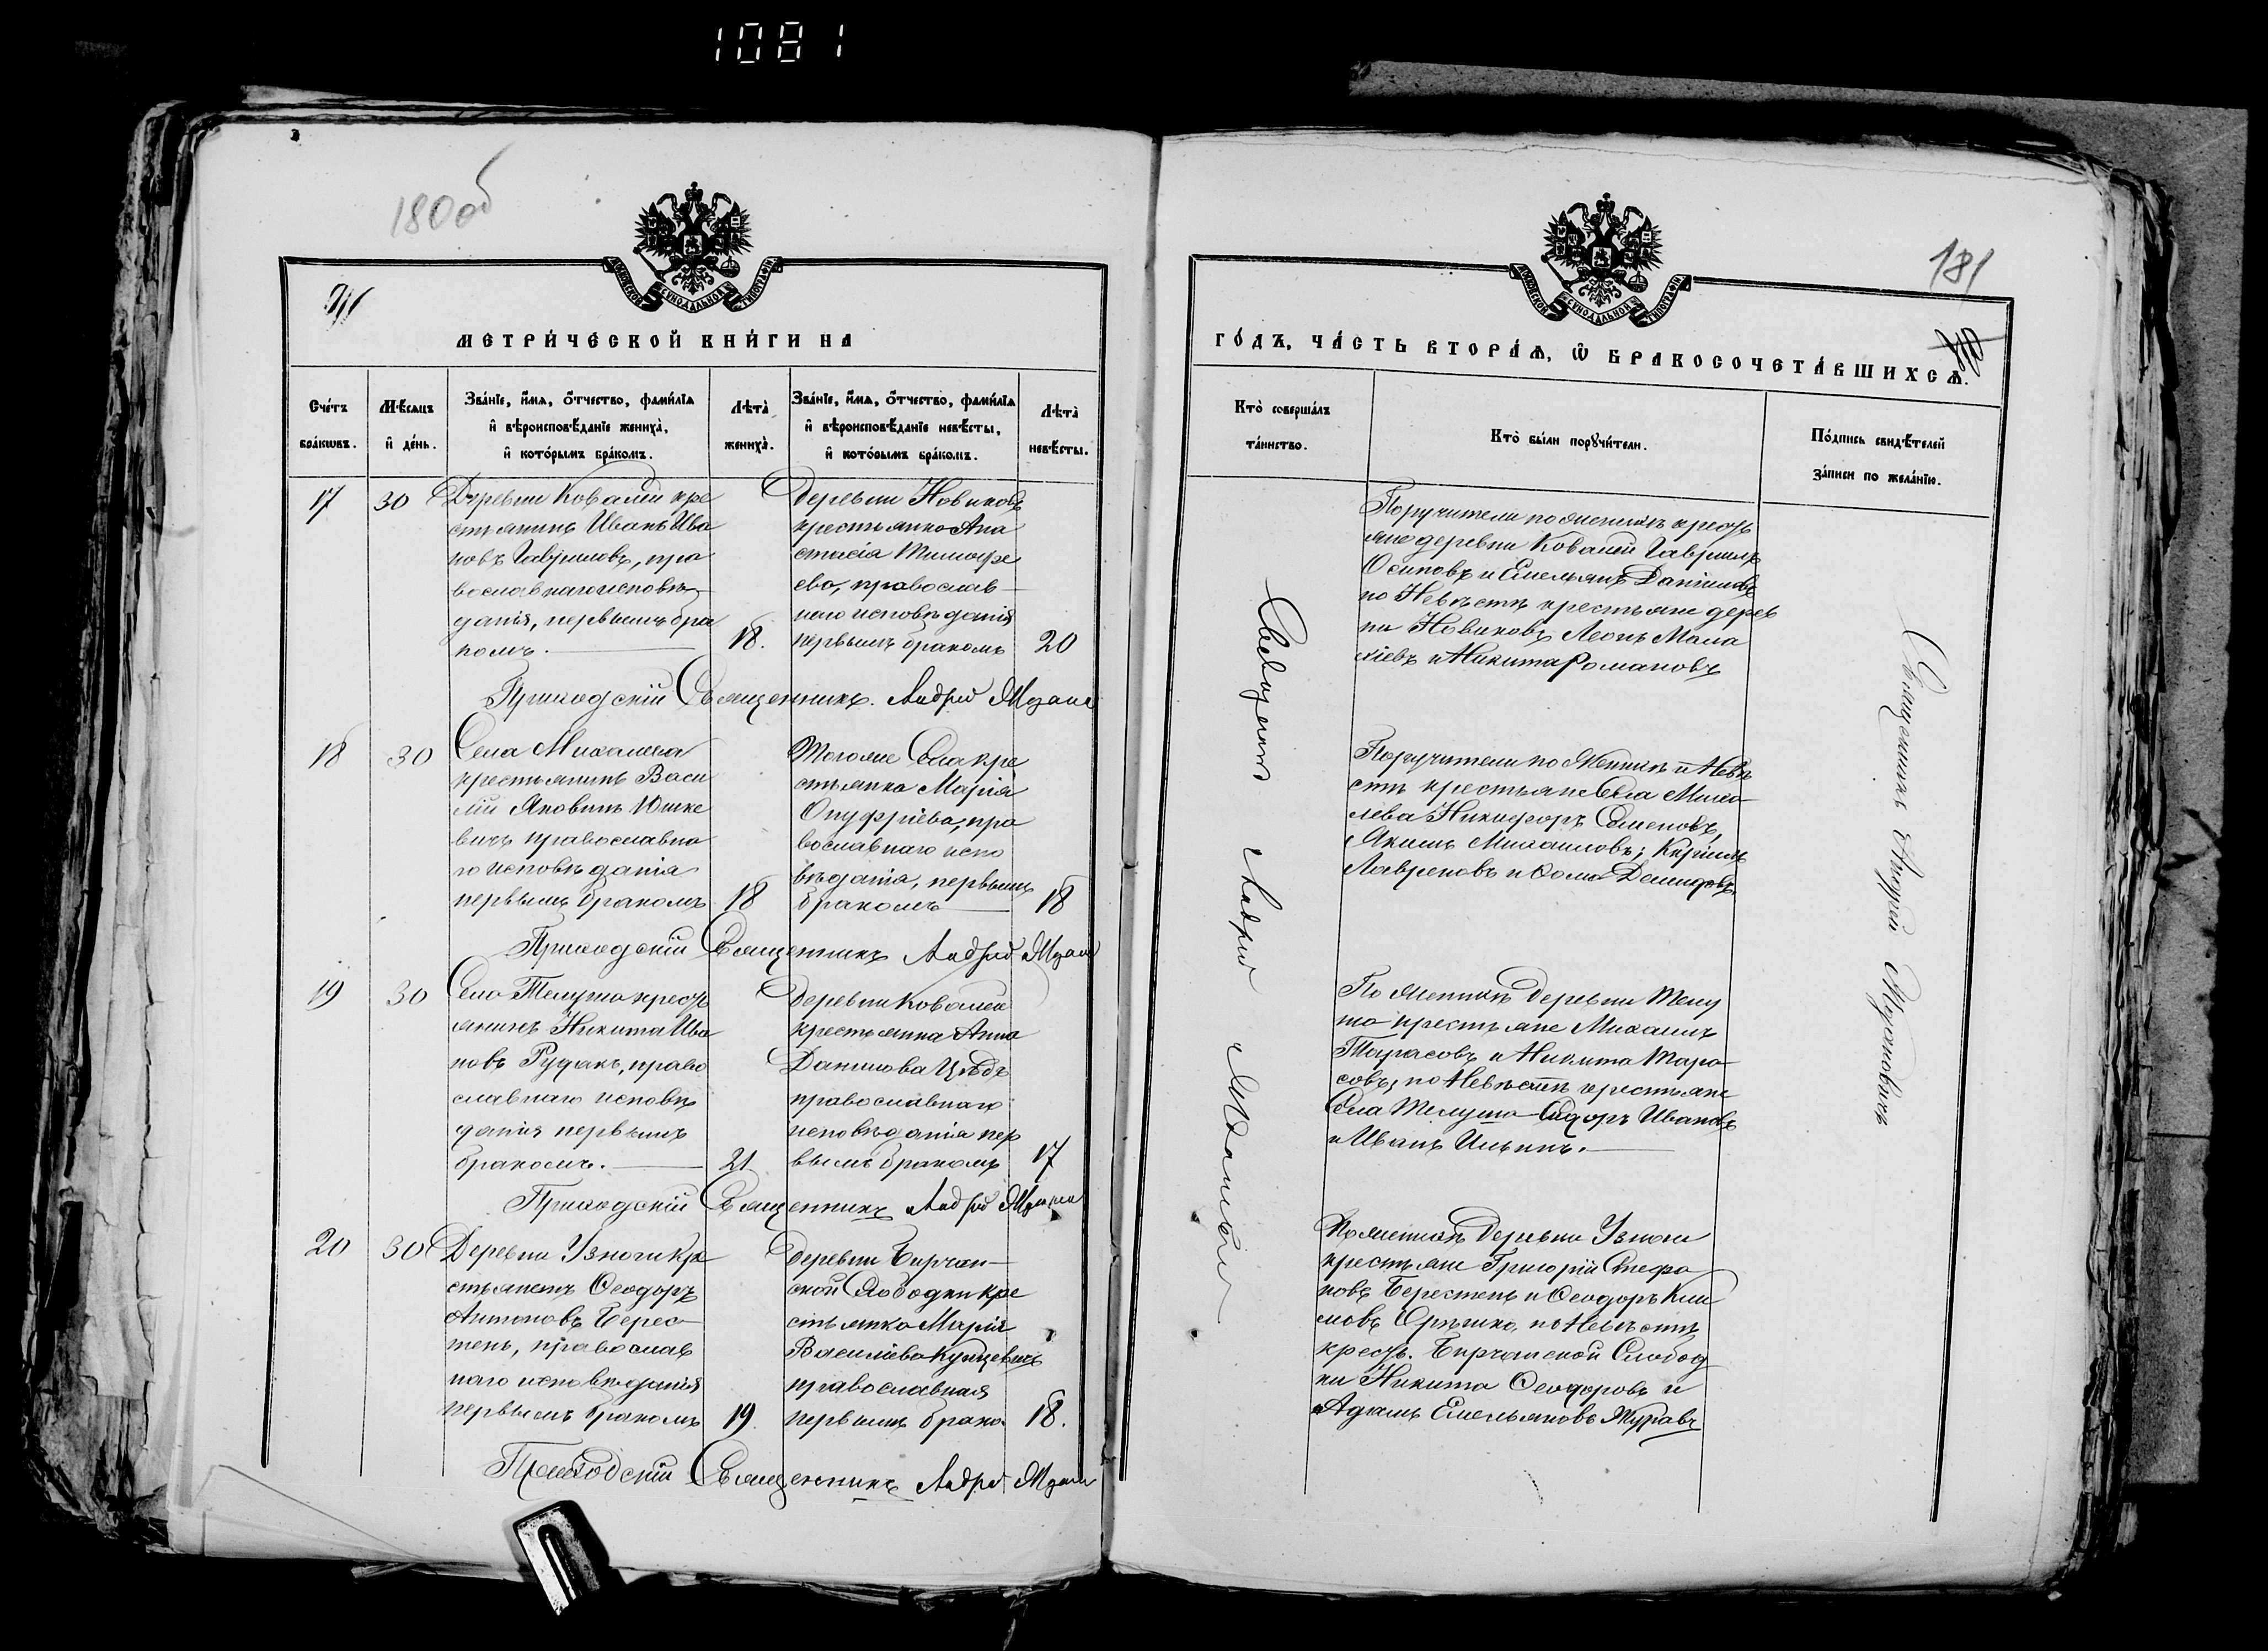 1081
180об
МОСКОВСКОЙ СѴНОДАЛЬНОЙ ТИПОГРАФІИ
МЕТРИ́ЧЕСКОЙ КНИ́ГИ НА
Сче́тъ бра́кωвъ.
Мѣ́сяцъ и҆ де́нь.
Зва́нїе, и҆́мѧ, ѻ҆́тчество, фами́лїѧ
и҆ вѣроисповѣ́данїе жениха̀,
и҆ кото́рымъ бра́комъ.
Лѣта̀ жениха̀.
Зва́нїе, и҆́мѧ, ѻ҆́тчество, фами́лїѧ
и҆ вѣроисповѣ́данїе невѣ́сты,
и҆ кото́рымъ бра́комъ.
Лѣта̀ невѣ́сты.
17
30
Деревни Ковалей кре
стьянинъ Иванъ Ива
новъ Гавриловъ, пра
вославнаго исповѣ
данія, первымъ бра
комъ.
18.
Деревни Новиковъ
крестьянка Ана
стасія Тимофе
ева, православ
наго исповѣданія
первымъ бракомъ
20
Приходскій Священникъ Андрей
18
30
Села Михалева
крестьянинъ Васи
лій Яковинъ Юшке
вичъ православна
го исповѣданія
первымъ бракомъ
18
Тогоже Села кре
стьянка Марія
Онуфріева, пра
вославнаго испо
вѣданія, первымъ
бракомъ
18
Приходскій Священникъ Андрей
19
30
Села Телуша кресть
янинъ Никита Ива
новъ Рудакъ, право
славнаго исповѣ
данія первымъ
бракомъ.
21
Деревни Ковалей
крестьянка Анна
Данилова
православнаго
исповѣданія пер
вымъ бракомъ
17
Приходскій Священникъ Андрей
20
30
Деревни Узноги кре
стьянинъ Ѳеодоръ
Антоновъ Берес
тень, православ
наго исповѣданія
первымъ бракомъ
19.
Деревни Бирчан
ской Слободки кре
стьянка Марія
Василіева Купцевичъ
православная
первымъ брако
18.
Приходскій Священникъ Андрей
181
МОСКОВСКОЙ СѴНОДАЛЬНОЙ ТИПОГРАФІИ
ГО́ДЪ, ЧА́СТЬ ВТОРА́Ѧ, Ѡ҆ БРАКОСОЧЕТА́ВШИХСѦ.
Кто̀ соверша́лъ та́инство.
Кто̀ бы́ли порꙋчи́тели.
По́дпись свидѣ́телей за́писи по жела́нїю.
Священникъ Андрей
Поручители по женихѣ кресть
яне деревни Ковалей Гавріилъ
Осиповъ и Емельянъ Даніиловъ
по Невѣстѣ крестьяне дерев
ни Новиковъ Леонъ Мала
хіевъ и Никита Романовъ
Поручители по Женихѣ и Невѣ
стѣ крестьяне Села Миха
лева Никифоръ Семеновъ,
Якимъ Михаиловъ; Кирилъ
Лавреновъ и Ѳома Демидовъ
По женихѣ деревни Телу
ша крестьяне Михаилъ
Тарасовъ и Никита Тара
совъ; по Невѣстѣ крестьяне
Села Телуша Сидоръ Ивановъ
и Иванъ Ильинъ.
По женихѣ деревни Узноги
крестьяне Григорій Стефа
новъ Берестень и Ѳеодоръ Кли
мовъ по Невѣстѣ
кресть. Бирчанской Слобод
ки Никита Ѳеодоровъ и
Адамъ Емельяновъ Журавъ
Священникъ Андрей